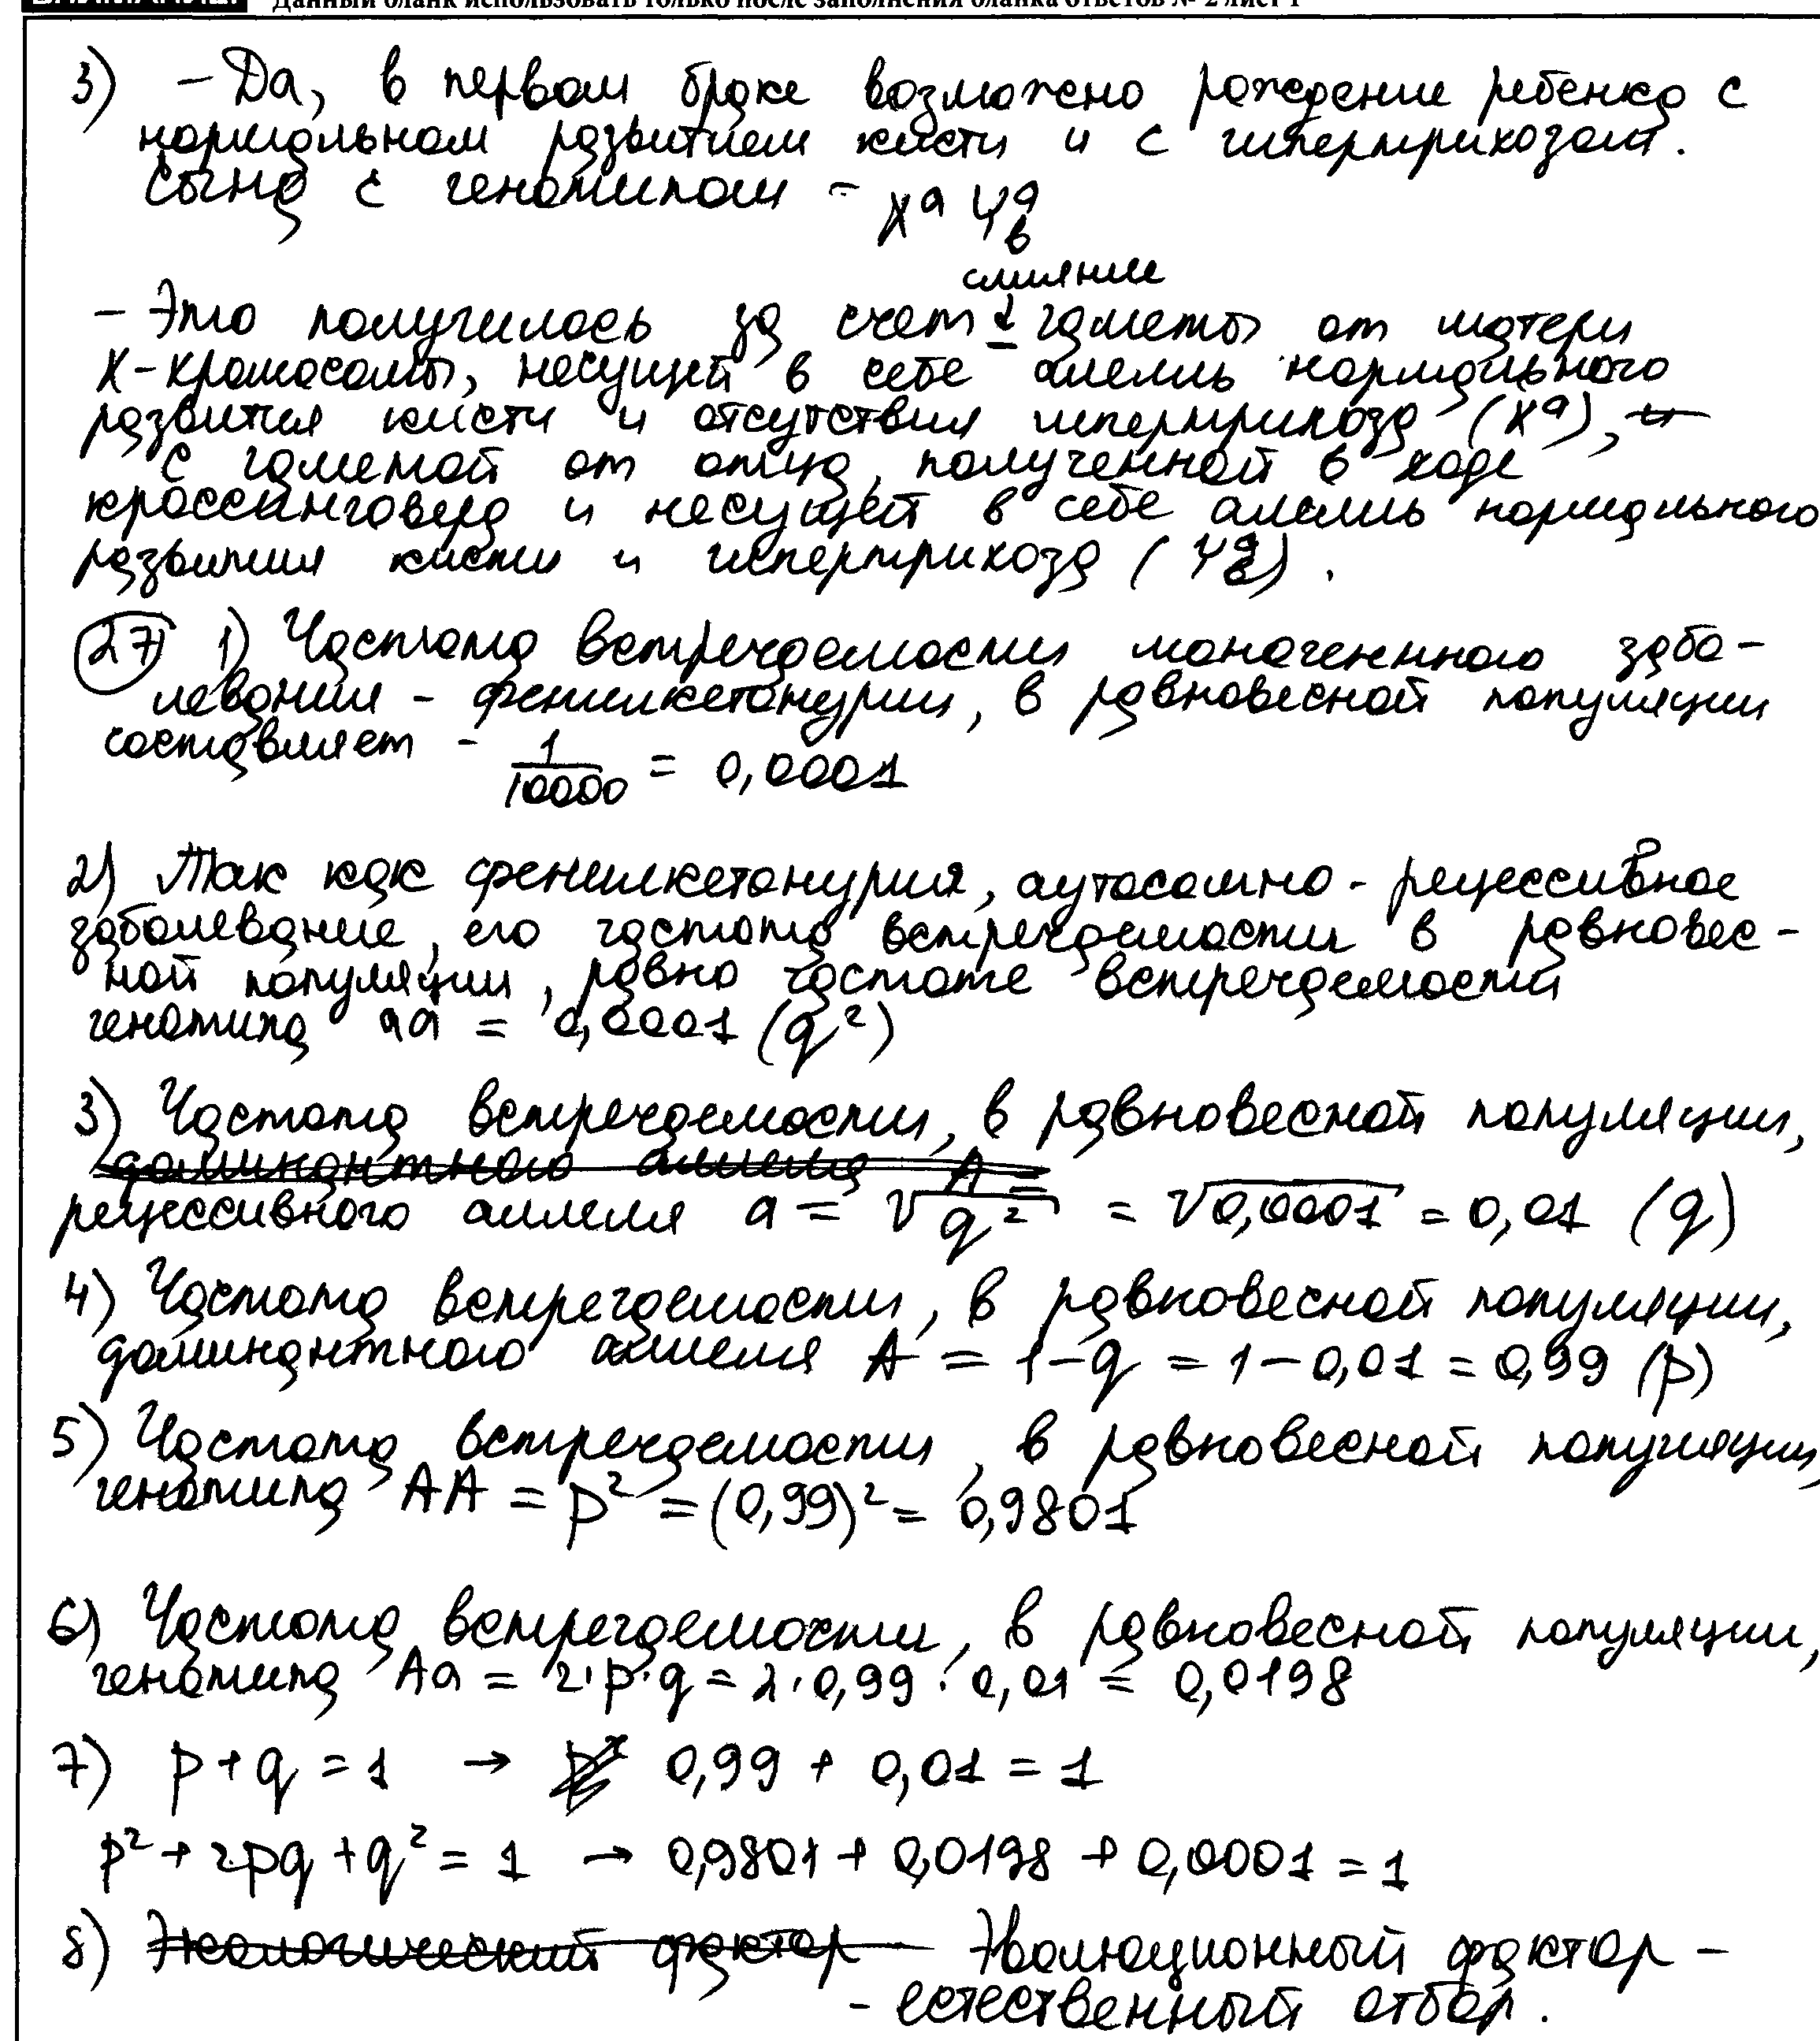 Данный бланк использовать только после заполнения бланка ответов № 2 лист 1
3) - Да, в первом браке возможно рождение ребенка с
нормальном развитием кисти и с гипертрихозом.
Сына с генотипом - Xᵃ Yᵃв
слияние
- Это получилось за счет гаметы от матери
X-хромосомы, несущей в себе аллель нормального
развития кисти и отсутствия гипертрихоза (Xᵃ), и
с гаметой от отца, полученной в ходе
кроссинговера и несущей в себе аллель нормального
развития кисти и гипертрихоза (Yᵃв).
27 1) Частота встречаемости моногенного забо-
левания - фенилкетонурии, в равновесной популяции
составляет - 1/10000 = 0,0001
2) Так как фенилкетонурия, аутосомно-рецессивное
заболевание, его частота встречаемости в равновес-
ной популяции, равно частоте встречаемости
генотипа aa = 0,0001 (q²)
3) Частота встречаемости, в равновесной популяции,
доминантного аллеля A =
рецессивного аллеля a = √q² = √0,0001 = 0,01 (q)
4) Частота встречаемости, в равновесной популяции,
доминантного аллеля A = 1-q = 1-0,01 = 0,99 (p)
5) Частота встречаемости, в равновесной популяции,
генотипа AA = p² = (0,99)² = 0,9801
6) Частота встречаемости, в равновесной популяции,
генотипа Aa = 2·p·q = 2·0,99·0,01 = 0,0198
7) p+q=1 → 0,99 + 0,01 = 1
p²+2pq+q² = 1 → 0,9801 + 0,0198 + 0,0001 = 1
8) Экологический фактор Эволюционный фактор -
- естественный отбор.